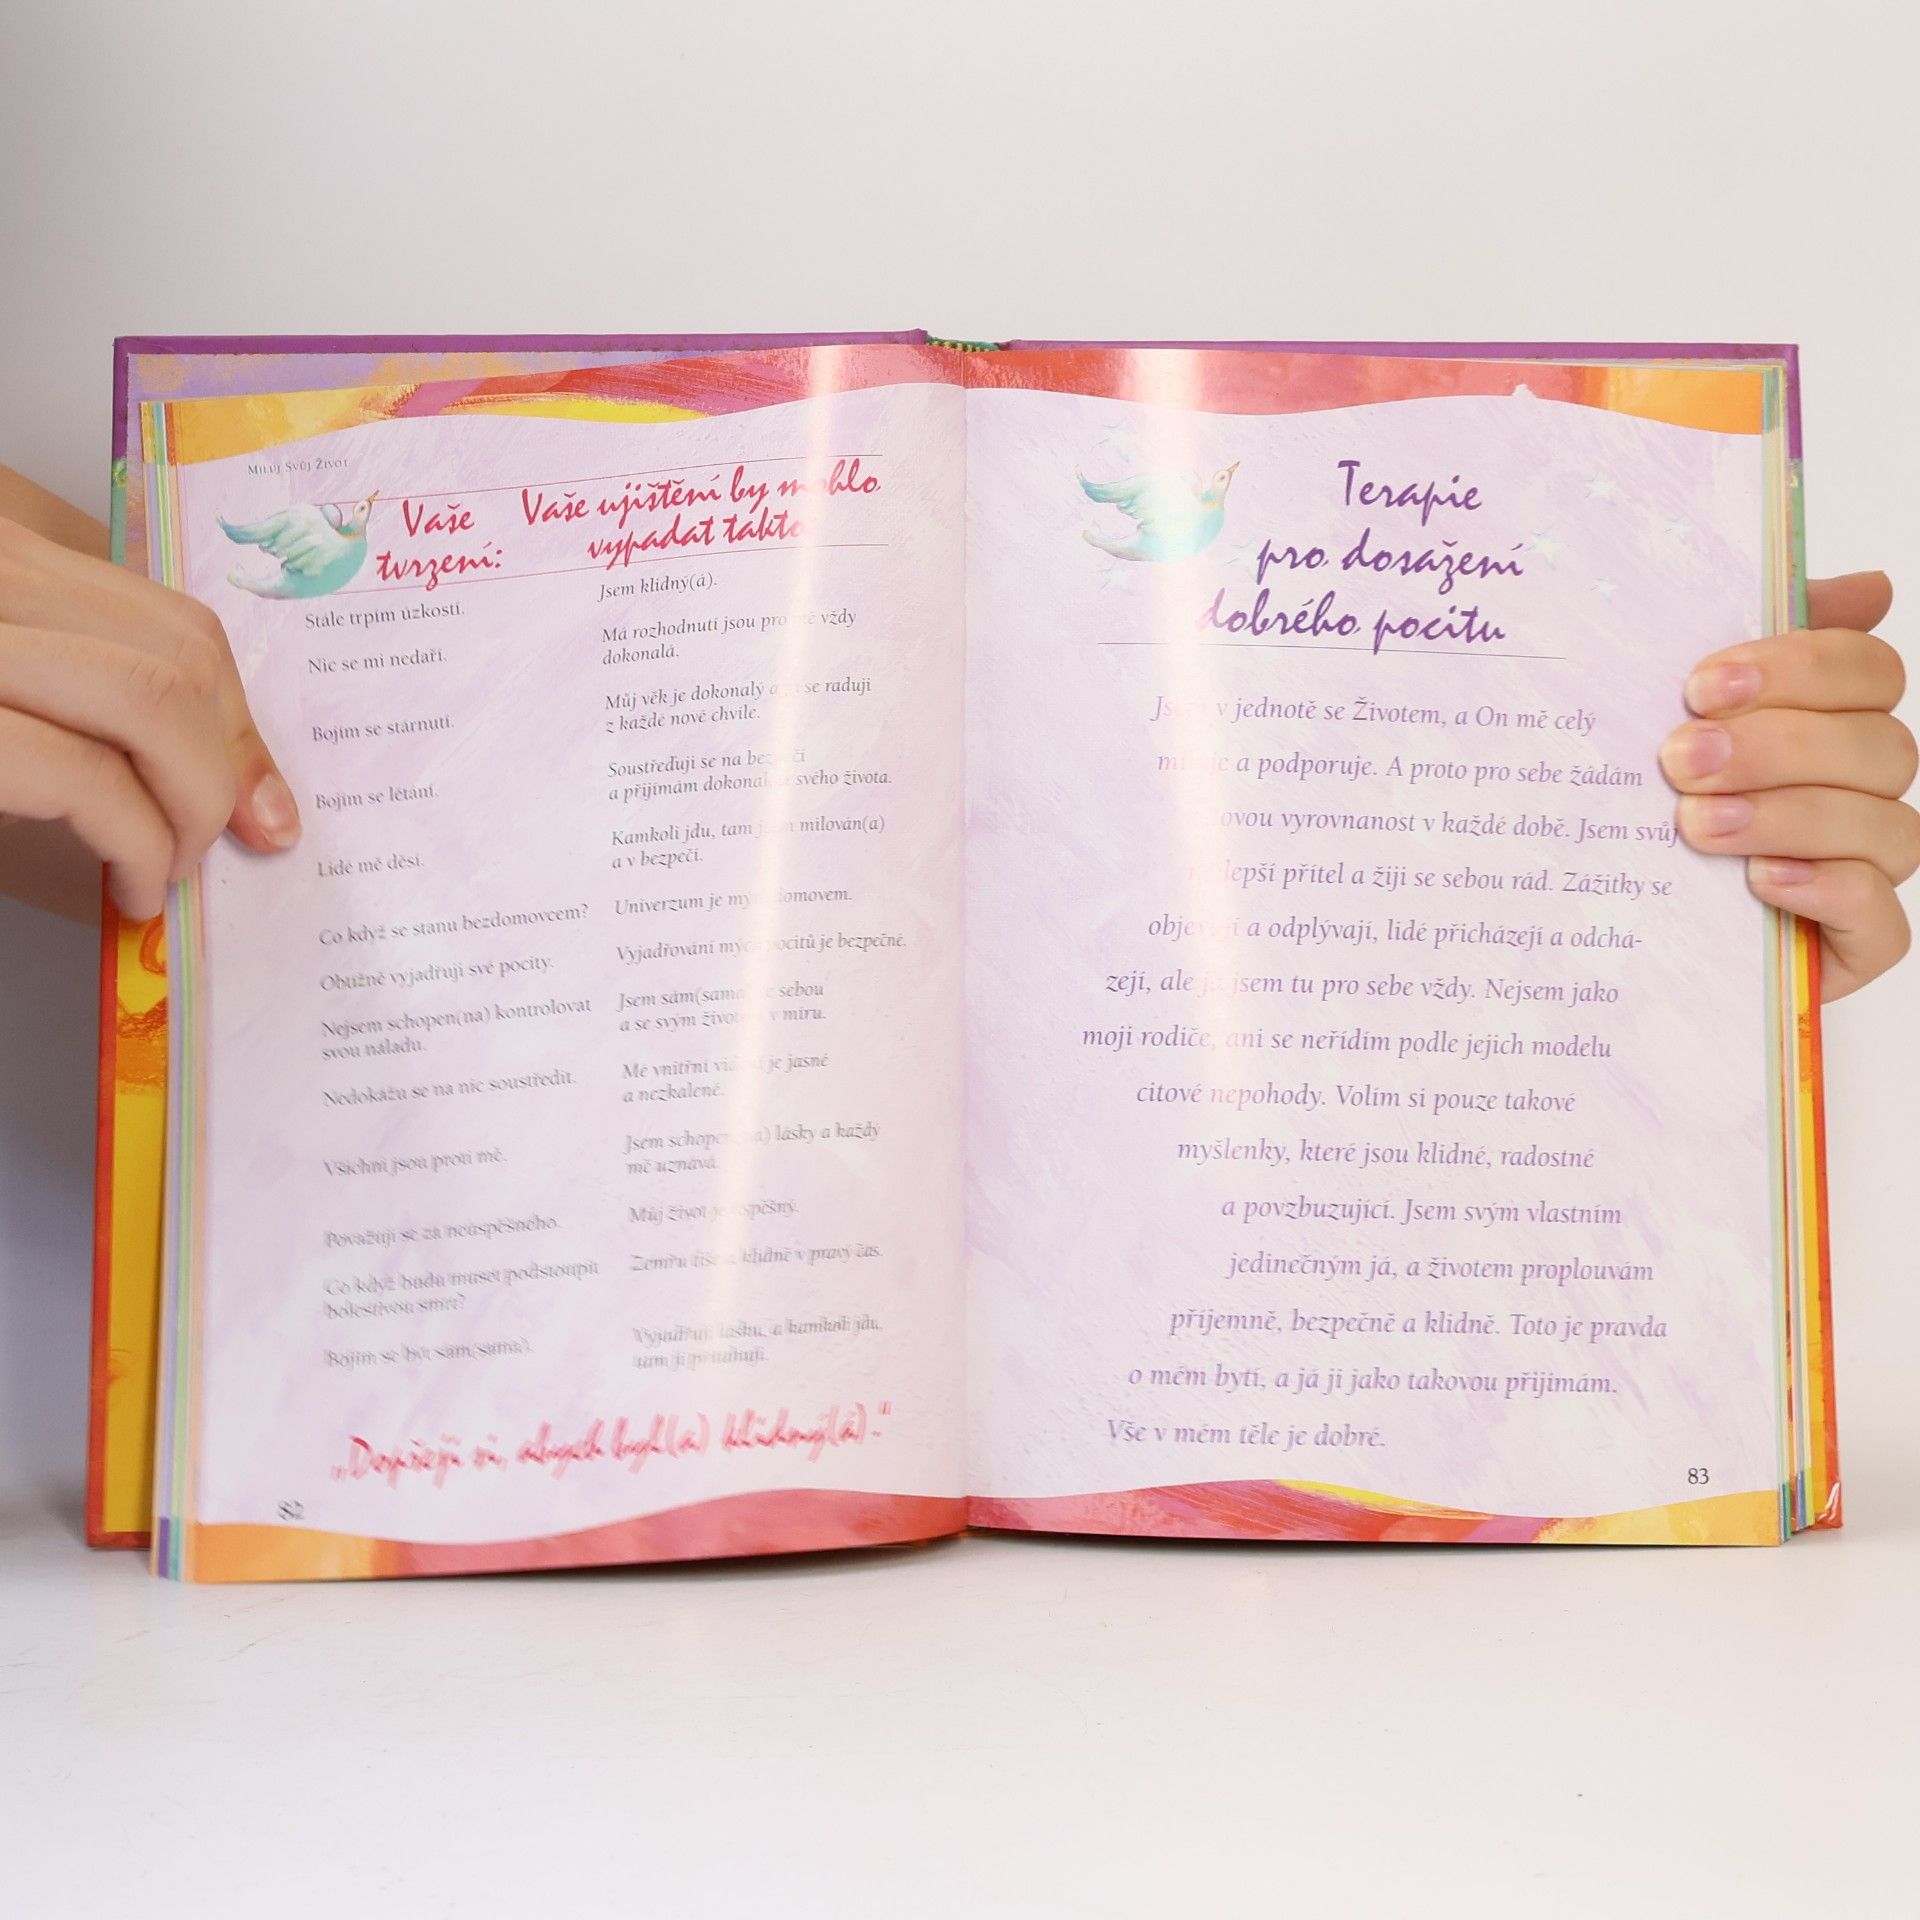 Miluj Svůj Život
Vaše
tvrzení:
Vaše ujištění by mohlo
vypadat takto
Stále trpím úzkostí.
Jsem klidný(á).
Nic se mi nedaří.
Má rozhodnutí jsou pro mě vždy
dokonalá.
Bojím se stárnutí.
Můj věk je dokonalý a já se raduji
z každé nové chvíle.
Bojím se létání.
Soustřeďuji se na bezpečí
a přijímám dokonalost svého života.
Lidé mě děsí.
Kamkoli jdu, tam jsem milován(a)
a v bezpečí.
Co když se stanu bezdomovcem?
Univerzum je mým domovem.
Obtížně vyjadřuji své pocity.
Vyjadřování mých pocitů je bezpečné.
Nejsem schopen(na) kontrolovat
svou náladu.
Jsem sám(sama) se sebou
a se svým životem v míru.
Nedokážu se na nic soustředit.
Mé vnitřní vidění je jasné
a nezkalené.
Všichni jsou proti mě.
Jsem schopen(na) lásky a každý
mě uznává.
Považuji se za neúspěšného.
Můj život je úspěšný.
Co když budu muset podstoupit
bolestivou smrt?
Zemřu tiše a klidně v pravý čas.
Bojím se být sám(sama).
Vyjadřuji lásku, a kamkoli jdu,
tam ji přitahuji.
„Dopřeji si, abych byl(a) klidný(á).“
82
Terapie
pro dosažení
dobrého pocitu
Jsem v jednotě se Životem, a On mě celý
miluje a podporuje. A proto pro sebe žádám
ovou vyrovnanost v každé době. Jsem svůj
nejlepší přítel a žiji se sebou rád. Zážitky se
objevují a odplývají, lidé přicházejí a odchá-
zejí, ale já jsem tu pro sebe vždy. Nejsem jako
moji rodiče, ani se neřídím podle jejich modelu
citové nepohody. Volím si pouze takové
myšlenky, které jsou klidné, radostné
a povzbuzující. Jsem svým vlastním
jedinečným já, a životem proplouvám
příjemně, bezpečně a klidně. Toto je pravda
o mém bytí, a já ji jako takovou přijímám.
Vše v mém těle je dobré.
83